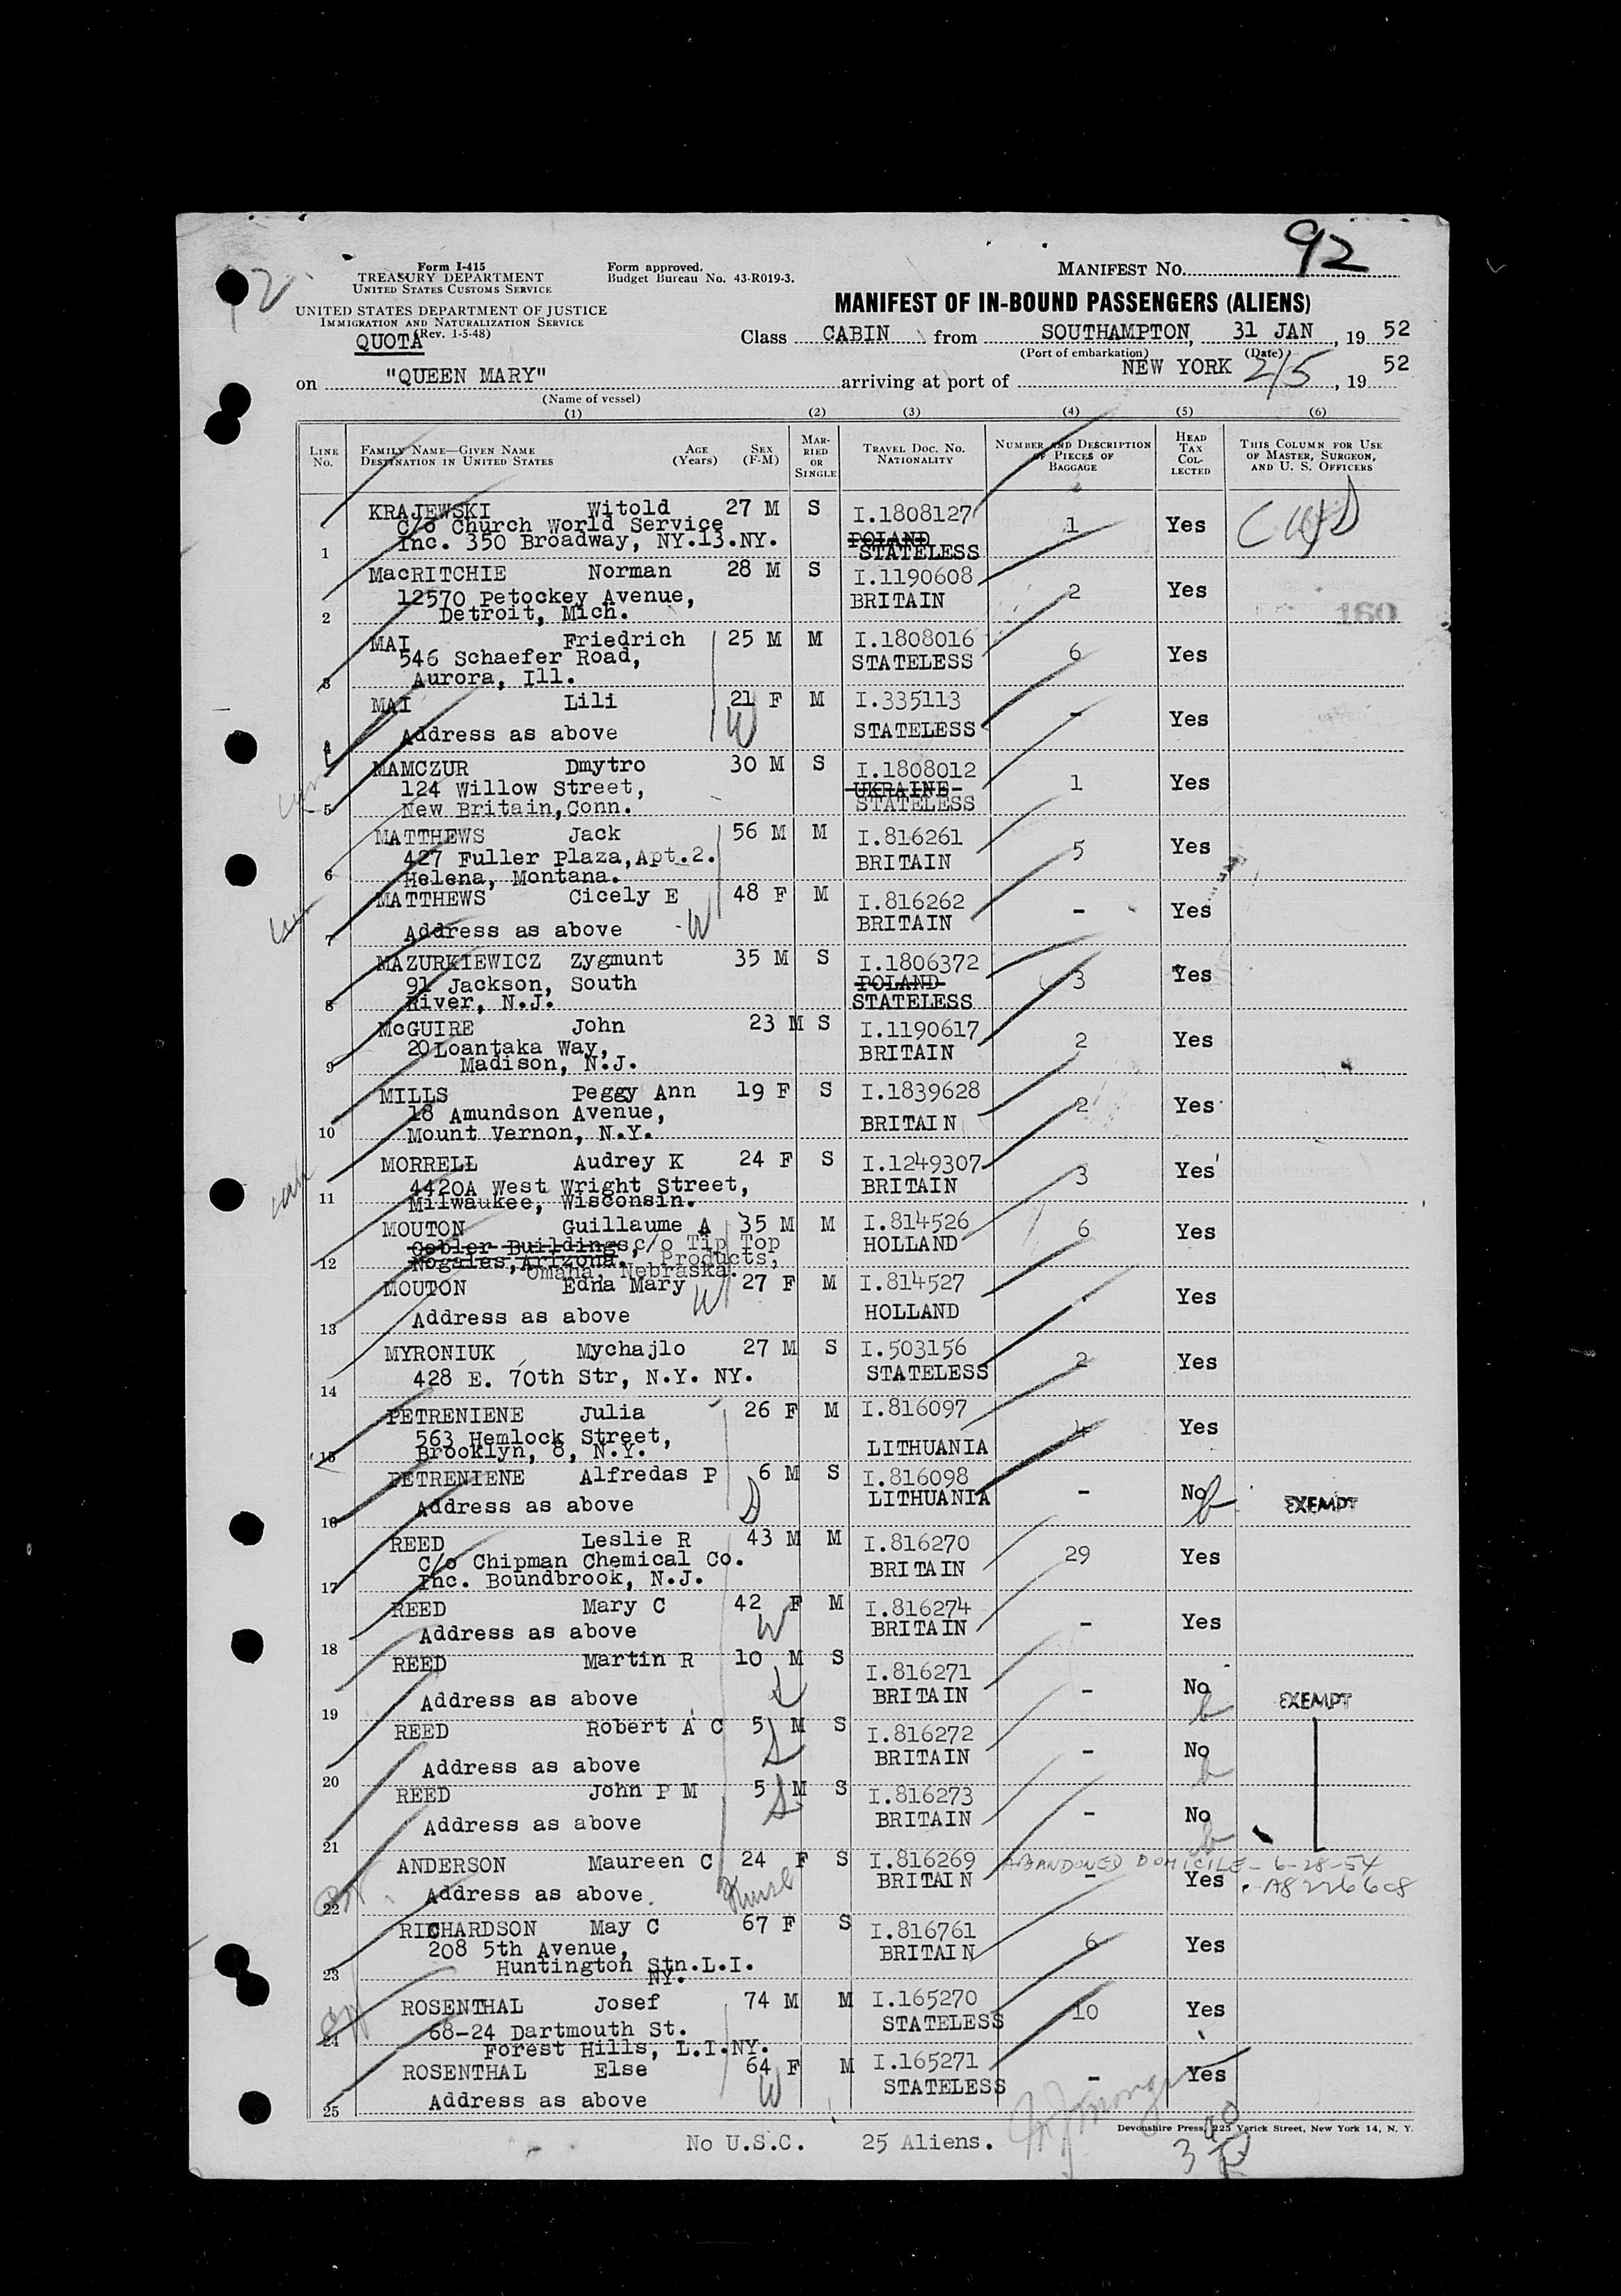 92
Form I-415
TREASURY DEPARTMENT
UNITED STATES CUSTOMS SERVICE
UNITED STATES DEPARTMENT OF JUSTICE
IMMIGRATION AND NATURALIZATION SERVICE
(Rev. 1-5-48)
QUOTA
Form approved.
Budget Bureau No. 43-R019-3.
MANIFEST NO.
MANIFEST OF IN-BOUND PASSENGERS (ALIENS)
Class CABIN from SOUTHAMPTON, 31 JAN, 19 52
(Port of embarkation) (Date)
on "QUEEN MARY" arriving at port of NEW YORK 2/5, 19 52
(Name of vessel)
(1) (2) (3) (4) (5) (6)
LINE No. FAMILY NAME—GIVEN NAME DESTINATION IN UNITED STATES AGE (Years) SEX (F-M) MARRIED OR SINGLE TRAVEL DOC. NO. NATIONALITY NUMBER AND DESCRIPTION OF PIECES OF BAGGAGE HEAD TAX COLLECTED THIS COLUMN FOR USE OF MASTER, SURGEON, AND U. S. OFFICERS
KRAJEWSKI Witold 27 M S I.1808127 1 Yes
c/o Church World Service
Inc. 350 Broadway, NY.13.NY. POLAND
1 STATELESS
MacRITCHIE Norman 28 M S I.1190608 2 Yes
12570 Petockey Avenue, BRITAIN
2 Detroit, Mich.
MAI Friedrich 25 M M I.1808016 6 Yes
546 Schaefer Road, STATELESS
3 Aurora, Ill.
MAI Lili 21 F M I.335113 - Yes
W
4 Address as above STATELESS
MAMCZUR Dmytro 30 M S I.1808012 1 Yes
124 Willow Street, UKRAINE
5 New Britain, Conn. STATELESS
MATTHEWS Jack 56 M M I.816261 5 Yes
427 Fuller Plaza, Apt.2. BRITAIN
6 Helena, Montana.
MATTHEWS Cicely E 48 F M I.816262 - Yes
7 Address as above W BRITAIN
MAZURKIEWICZ Zygmunt 35 M S I.1806372 3 Yes
91 Jackson, South POLAND
8 River, N.J. STATELESS
McGUIRE John 23 M S I.1190617 2 Yes
20 Loantaka Way, BRITAIN
9 Madison, N.J.
MILLS Peggy Ann 19 F S I.1839628 2 Yes
18 Amundson Avenue, BRITAIN
10 Mount Vernon, N.Y.
MORRELL Audrey K 24 F S I.1249307 3 Yes
4420A West Wright Street, BRITAIN
11 Milwaukee, Wisconsin.
MOUTON Guillaume A 35 M M I.814526 6 Yes
Gobler Buildings, c/o Tip Top HOLLAND
12 Nogales, Arizona. Products,
Omaha, Nebraska.
MOUTON Edna Mary 27 F M I.814527 Yes
W
13 Address as above HOLLAND
MYRONIUK Mychajlo 27 M S I.503156 2 Yes
14 428 E. 70th Str, N.Y. NY. STATELESS
PETRENIENE Julia 26 F M I.816097 4 Yes
563 Hemlock Street,
15 Brooklyn, 8, N.Y. LITHUANIA
PETRENIENE Alfredas P 6 M S I.816098 - No EXEMPT
16 Address as above LITHUANIA
REED Leslie R 43 M M I.816270 29 Yes
c/o Chipman Chemical Co. BRITAIN
17 Inc. Boundbrook, N.J.
REED Mary C 42 F M I.816274 - Yes
W
18 Address as above BRITAIN
REED Martin R 10 M S I.816271 - No EXEMPT
19 Address as above BRITAIN
REED Robert A C 5 M S I.816272 - No
20 Address as above BRITAIN
REED John P M 5 M S I.816273 - No
21 Address as above BRITAIN
ANDERSON Maureen C 24 F S I.816269 - Yes
ABANDONED DOMICILE - 6-28-54
22 Address as above. Nurse BRITAIN A8226608
RICHARDSON May C 67 F S I.816761 6 Yes
208 5th Avenue, BRITAIN
23 Huntington Stn.L.I.
NY.
ROSENTHAL Josef 74 M M I.165270 10 Yes
68-24 Dartmouth St. STATELESS
24 Forest Hills, L.I.NY.
ROSENTHAL Else 64 F M I.165271 - Yes
W
25 Address as above STATELESS
Devonshire Press, 225 Varick Street, New York 14, N. Y.
No U.S.C. 25 Aliens.